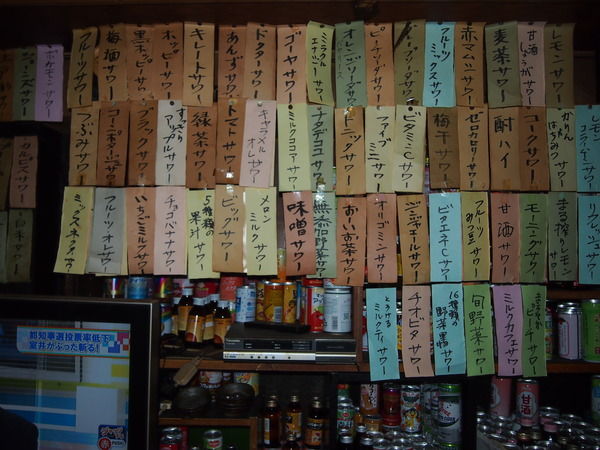 フルーツサワー
梅酒サワー
黒ホッピーサワー
ホッピーサワー
キレートサワー
あんずサワー
ドクターサワー
ゴーヤサワー
ミラクル
エナジー
サワー
フルーツ
ミックスサワー
赤マムシサワー
麦茶サワー
甘酒
しょうがサワー
レモンサワー
つぶみサワー
ブラックサワー
すっきり
アップルサワー
緑茶サワー
トマトサワー
キャラメル
オレサワー
ミルクココアサワー
ナタデココサワー
トニックサワー
ファイブ
ミニサワー
ビタミンCサワー
梅干サワー
ゼロカロリーサワー
酎ハイ
コークサワー
かりん
はちみつサワー
ミックスネクターサワー
フルーツオレサワー
いちごミルクサワー
チョコバナナサワー
5種類の
果汁サワー
ビックサワー
メロン
ミルクサワー
味噌サワー
無添加野菜サワー
おいお茶サワー
オリゴミンサワー
ジンジャエールサワー
ビタエネCサワー
フルーツ
みつ豆サワー
甘酒サワー
モーニングサワー
まる搾りレモンサワー
リフレッシュサワー
とろける
ミルクティサワー
チオビタサワー
16種類の
野菜果物サワー
旬野菜サワー
ミルクカフェサワー
ピーチサワー
カルピスサワー
都知事選投票率低下
室井がぶった斬る!
甘酒